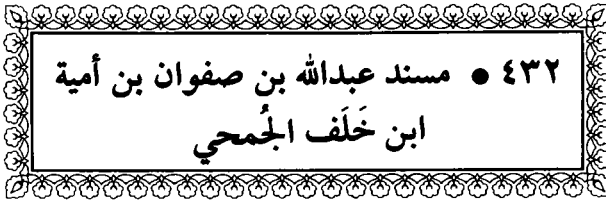 ٤٣٢ ● مسند عبدالله بن صفوان بن أمية
ابن خَلَف الجُمحي